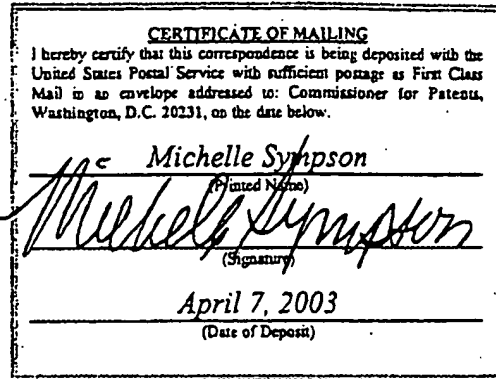 CERTIFICATE OF MAILING
I hereby certify that this correspondence is being deposited with the
United States Postal Service with sufficient postage as First Class
Mail in an envelope addressed to: Commissioner for Patents,
Washington, D.C. 20231, on the date below.
Michelle Sympson
(Printed Name)
Michele Sympson
(Signature)
April 7, 2003
(Date of Deposit)